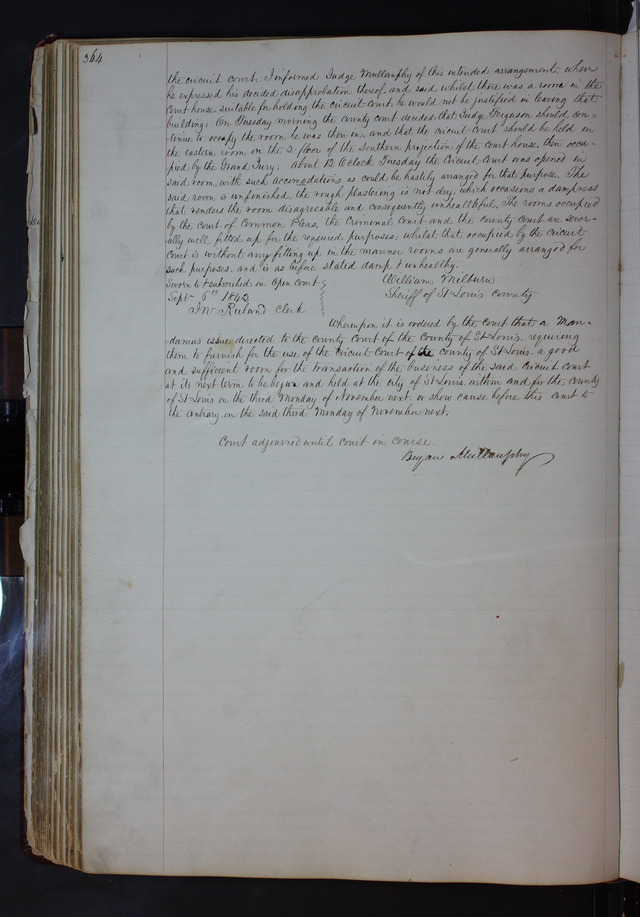 364
the circuit court. I informed Judge Mullanphy of this intended arrangement, when
he expressed his decided disapprobation thereof, and said whilst there was a room in the
Court house suitable for holding the circuit court he would not be justified in leaving that
building: On Tuesday morning the county court decided that Judge Ferguson should con-
tinue to occupy the room he was then in and that the circuit court should be held in
the eastern room on the 2 floor of the southern projection of the court house, then occu-
pied by the Grand Jury; about 12 OClock Tuesday the Circuit Court was opened in
said room, with such accomodations as could be hastely arranged for that purpose. The
said room is unfinished, the rough plastering is not dry, which occasions a dampness
that renders the room disagreeable and consequently unhealthful. The rooms occupied
by the Court of Common Pleas, the Criminal Court and the county Court are sever-
ally well fitted up for the required purposes, whilst that occupied by the Circuit
Court is without any fitting up in the manner rooms are generally arranged for
such purposes. and is as before stated damp & unhealthy.
Sworn to & subscribed in Open Court William Milburn
Septr 6th 1842 Sheriff of St Louis County
Jno Ruland Clerk
Whereupon it is ordered by the court that a Man-
damus issue directed to the County Court of the County of St Louis, requiring
them to furnish for the use of the Circuit Court of the county of St Louis. a good
and sufficient room for the transaction of the business of the said Circuit Court
at its next term to be begun and held at the city of St Louis within and for the county
of St Louis on the third Monday of November next. or show cause before this court to
the contrary on the said third Monday of November next.
Court adjourned until court in course.
Bryan Mullanphy